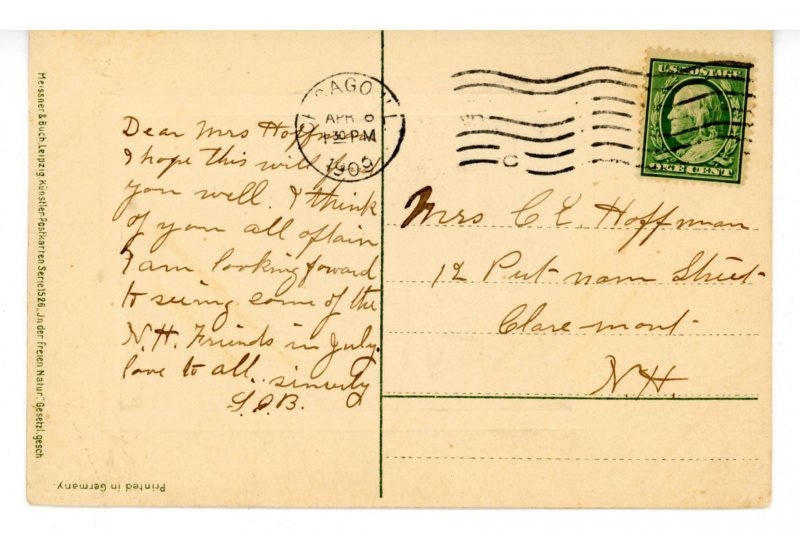 Meissner & Buch, Leipzig. Künstler-Postkarten Serie 1526 „In der freien Natur." Gesetzl. gesch.
CHICAGO ILL.
APR 6
30 PM
1909
U.S. POSTAGE
ONE CENT
Dear Mrs Hoffman
I hope this will find
you well. I think
of you all oftain
I am looking foward
to seeing some of the
N.H. Friends in July.
love to all. sincerly
Mrs C E. Hoffman
12 Put-nam Street
Clare-mont-
N.H.
Printed in Germany.